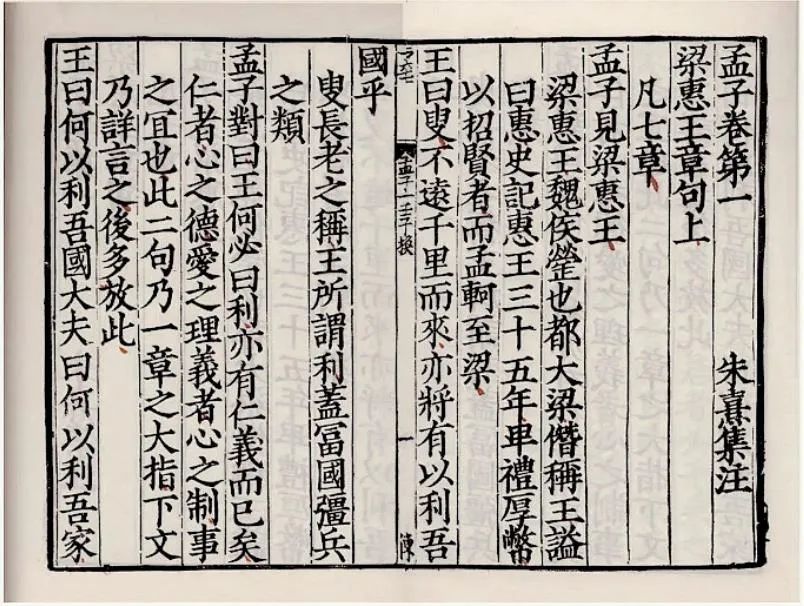 孟子卷第一 朱熹集注
梁惠王章句上
凡七章
孟子見梁惠王
梁惠王魏侯罃也都大梁僭稱王謚
曰惠史記惠王三十五年卑禮厚幣
以招賢者而孟軻至梁
王曰叟不遠千里而來亦將有以利吾
孟子一 壬子換
一
陳
國乎
叟長老之稱王所謂利蓋冨國彊兵
之類
孟子對曰王何必曰利亦有仁義而已矣
仁者心之德愛之理義者心之制事
之冝也此二句乃一章之大指下文
乃詳言之後多放此
王曰何以利吾國大夫曰何以利吾家